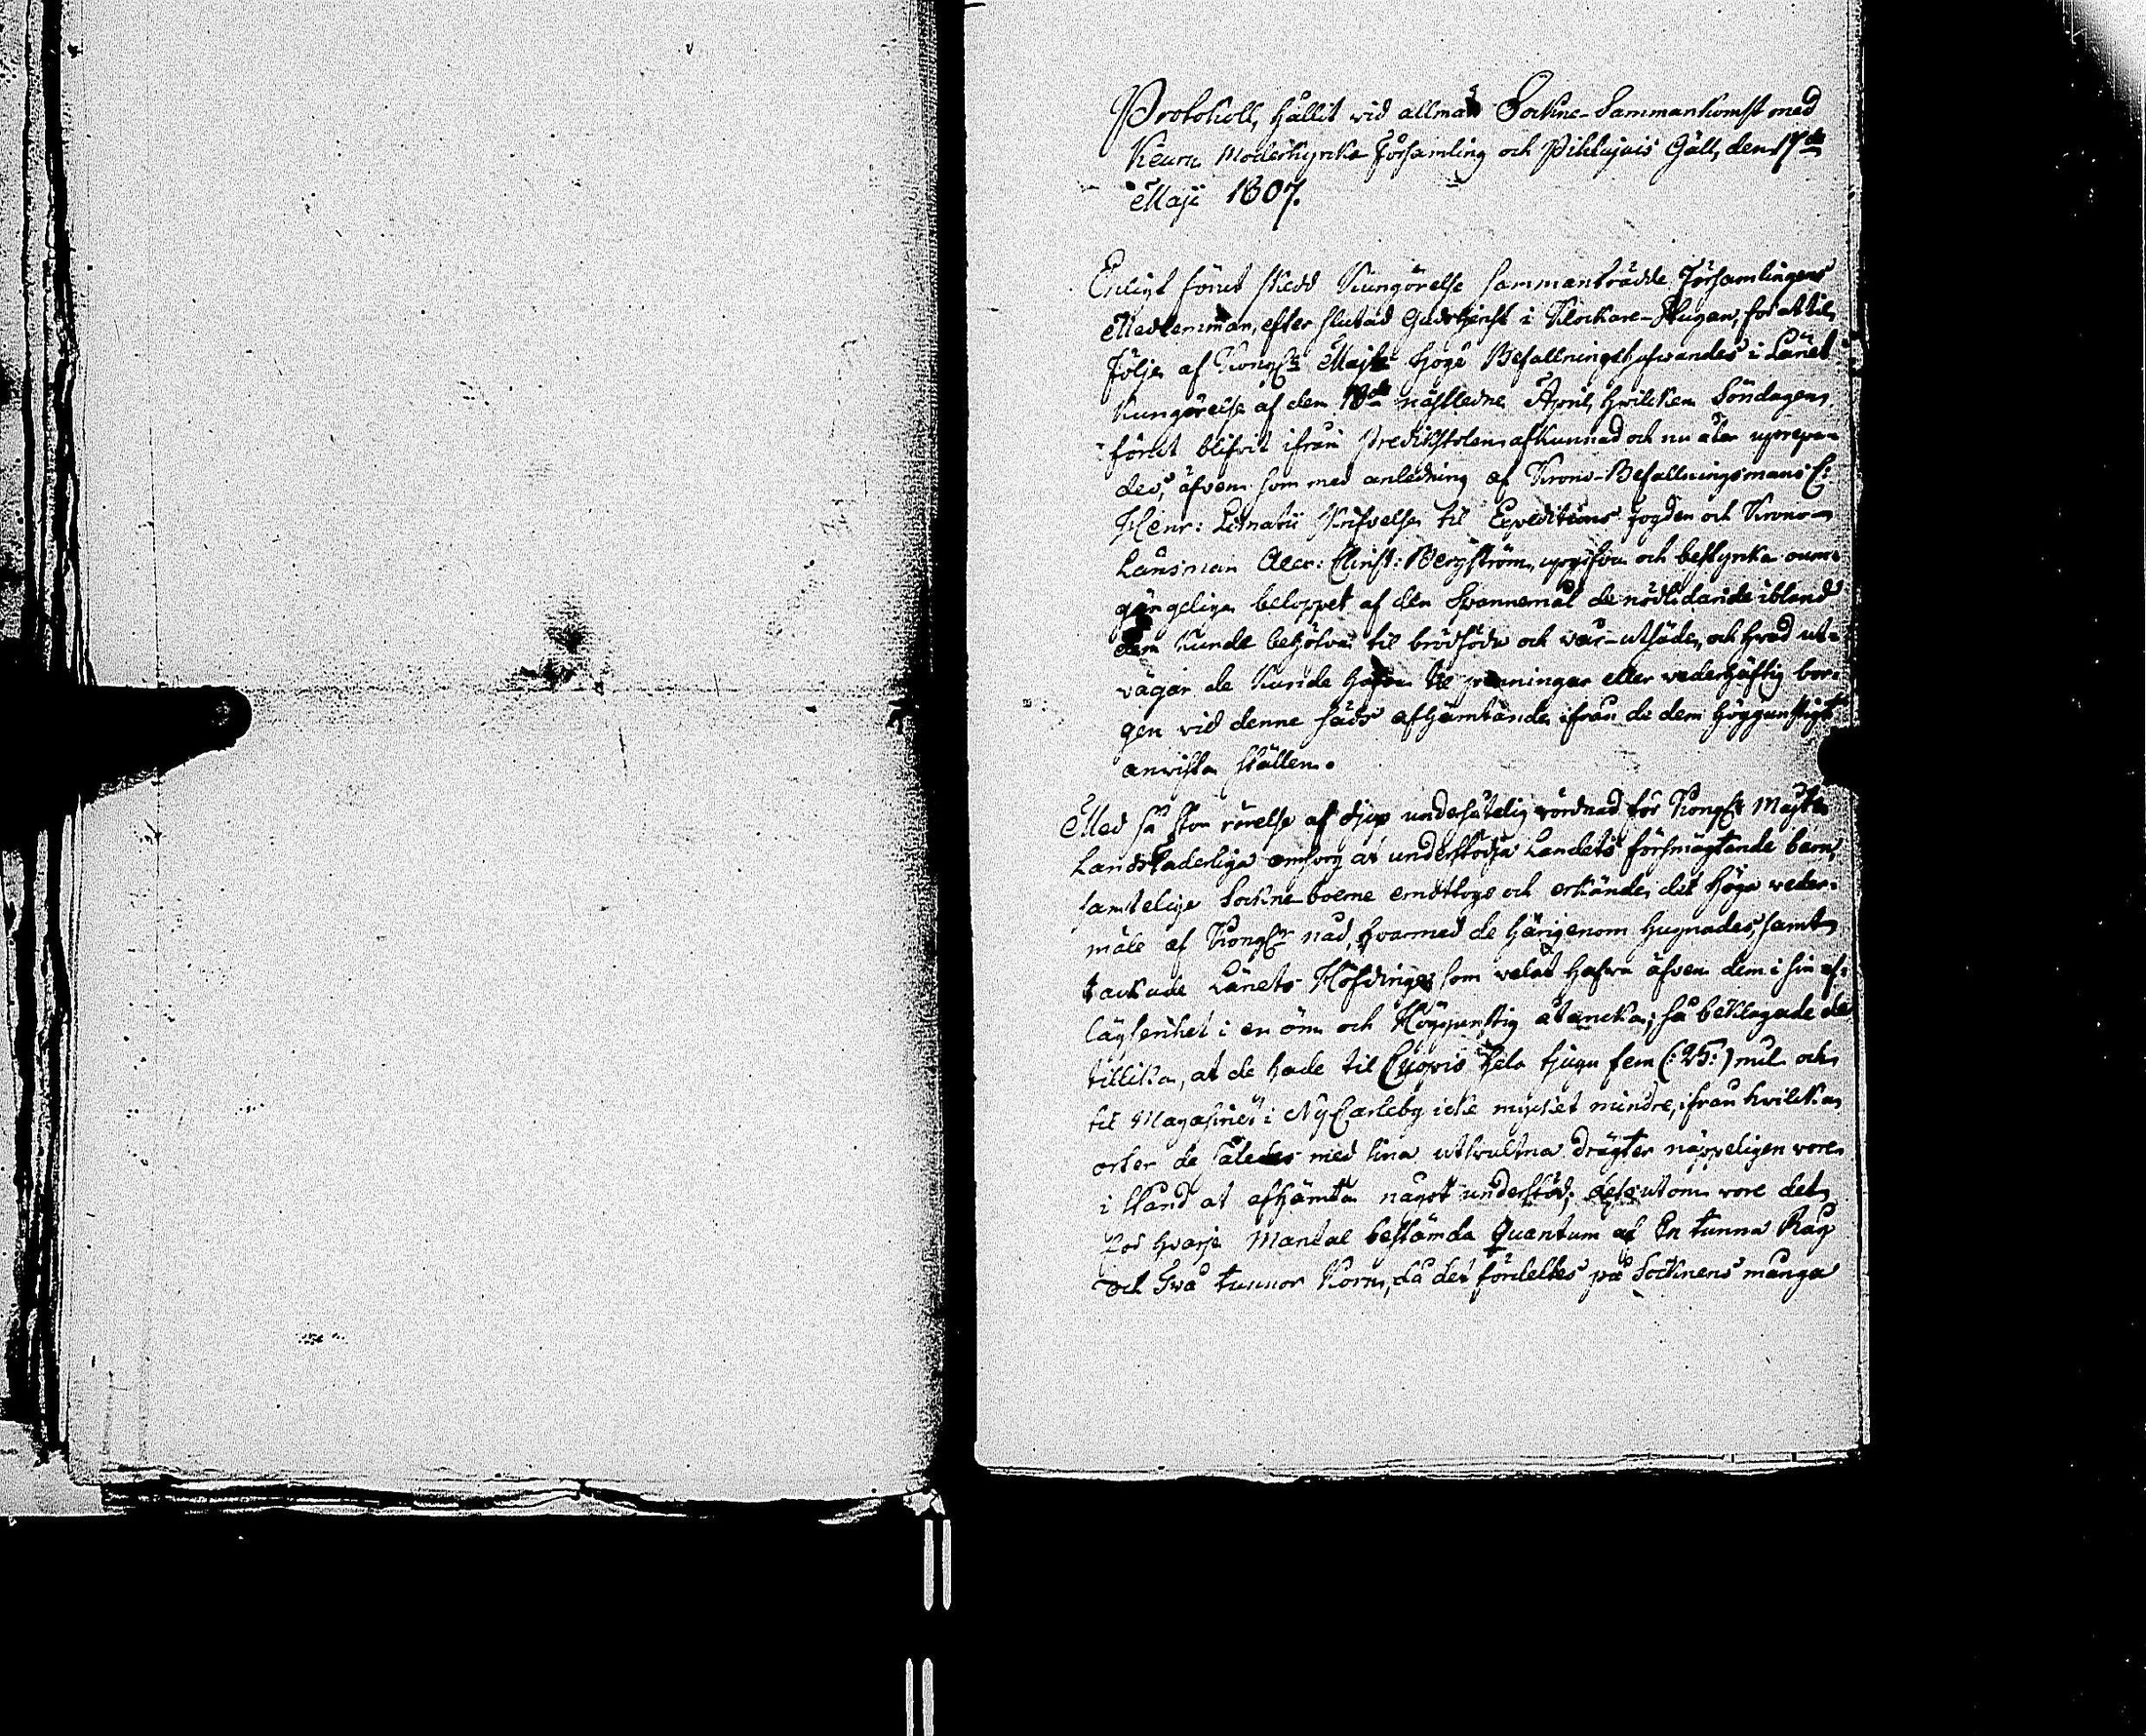 Protokoll, hållit vid allmän Sockne-Sammankomst med
Keuru Moderkyrko Församling och Pihlajais Gäll, den 17de
Maji 1807.
Enligt förut skedd Kungörelse sammanträdde Församlingens
Medlemmar, efter slutad Gudstjenst i Klockare-Stugan, for at til
följe af Kongl: Majts Höge Befallningshafwandes i Länet
Kungörelse af den 18de nästledne April, hvilken Söndagen
förut blifvit ifrån Predikstolen afkunnad och nu åter uprepa-
des, äfven som med anledning af Krono-Befallningsmans C:
Henr: Limatii Skrifvelse til Expeditions fogden och Krono-
Länsman Alex: Christ: Bergström, upgifva och bestyrka oum-
gängeliga beloppet af den Spannemål de nödlidande ibland
dem kunde behöfva til brödföda och vår-utsäde, och hvad ut-
vägar de kunde hafva til penningar eller vederhäftig bor-
gen vid denne säds afhämtande ifrån de dem höggunstigt
anviste ställen.
Med så stor rörelse af djup undersåtelig vördnad för Kongl: Majts
Landsfaderliga omsorg at understödja Landets försmägtande barn,
samtelige Sockne-boerne emottogo och erkände det höga veder-
mäle af Kongl: nåd, hvarmed de härigenom hugnades, samt
tackade Länets Höfdinge, som velat hafva äfven dem i sin af-
lägsenhet i en öm och Höggunstig åtancka; så beklagade de
tillika, at de hade til Cuopio hela tjugu fem (:25:) mil och
til Magasinet i NyCarleby icke mycket mindre, ifrån hvilka
orter de således med sina utsvultna dragter näppeligen vore
i stånd at afhämta något understöd; dessutom vore det
för hvarje Mantal bestämda Quantum af En tunna Råg
och två tunnor Korn, då det fördeltes på Socknens många